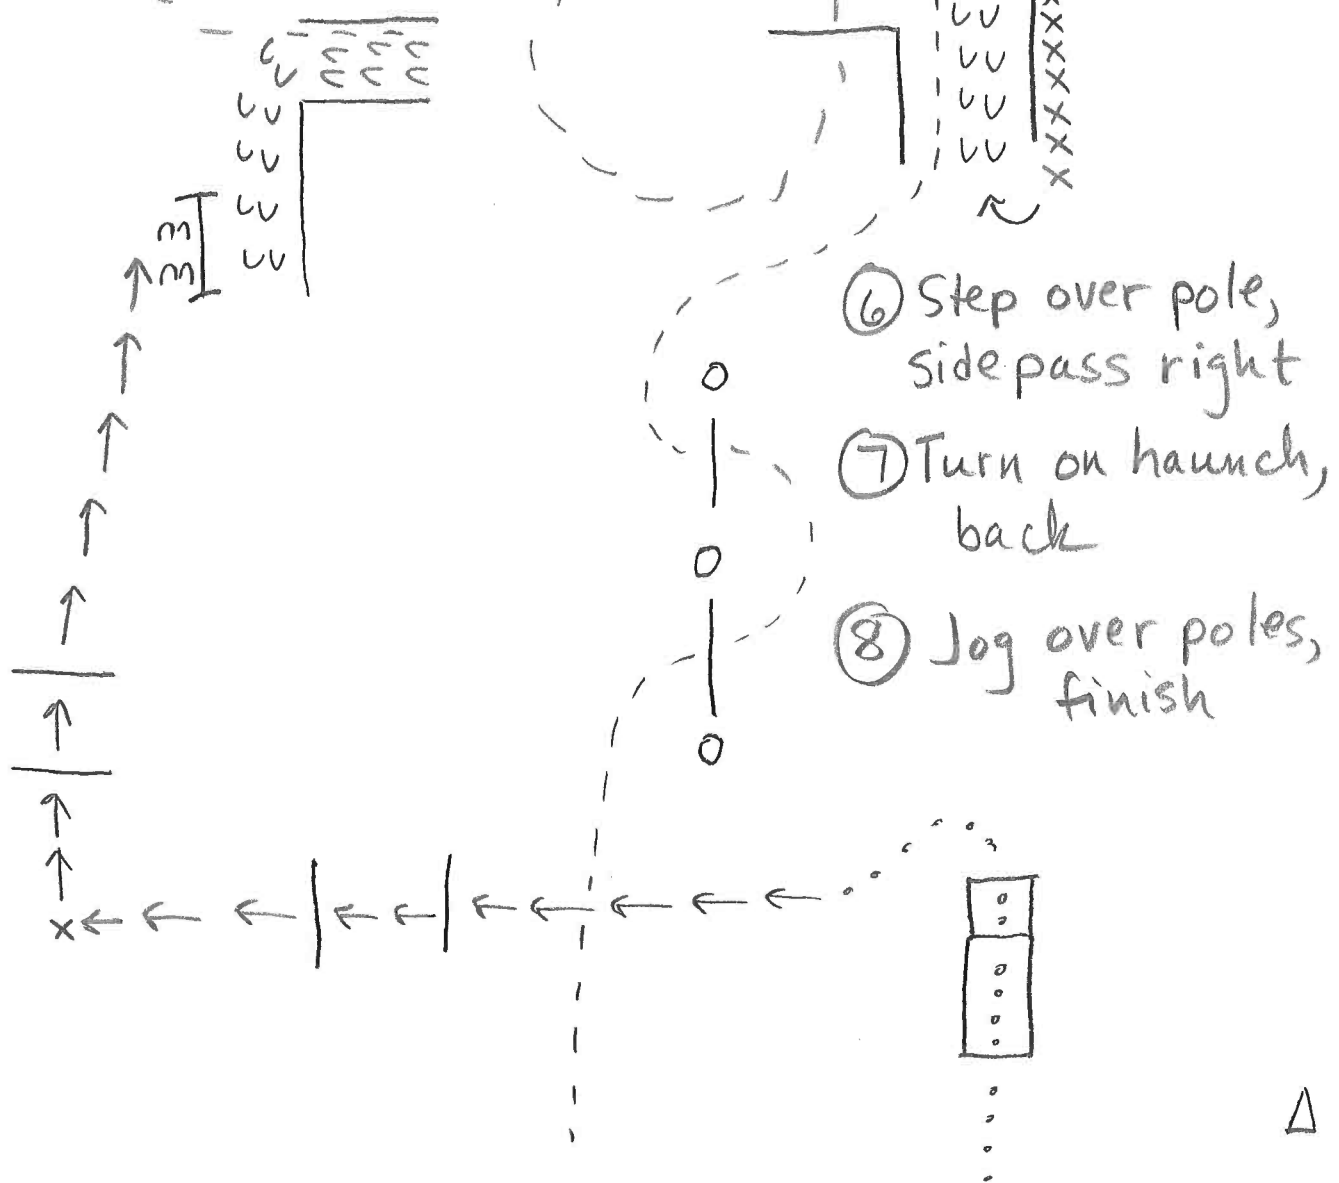 ⑥ Step over pole,
sidepass right
⑦ Turn on haunch,
back
⑧ Jog over poles,
finish